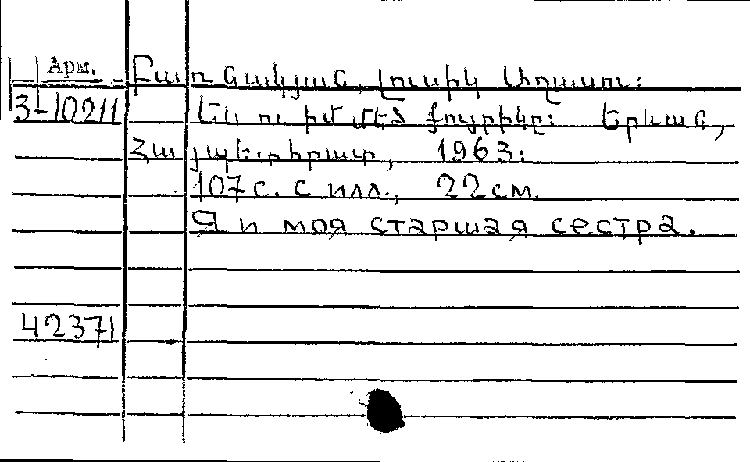 Арм.
3-10211
Բաղդակյան, Լուսիկ Աղասու:
Ես ու իմ մեծ քույրիկը: Երևան,
Հայպետհրատ, 1963:
107 с. с илл., 22 см.
Я и моя старшая сестра.
42371